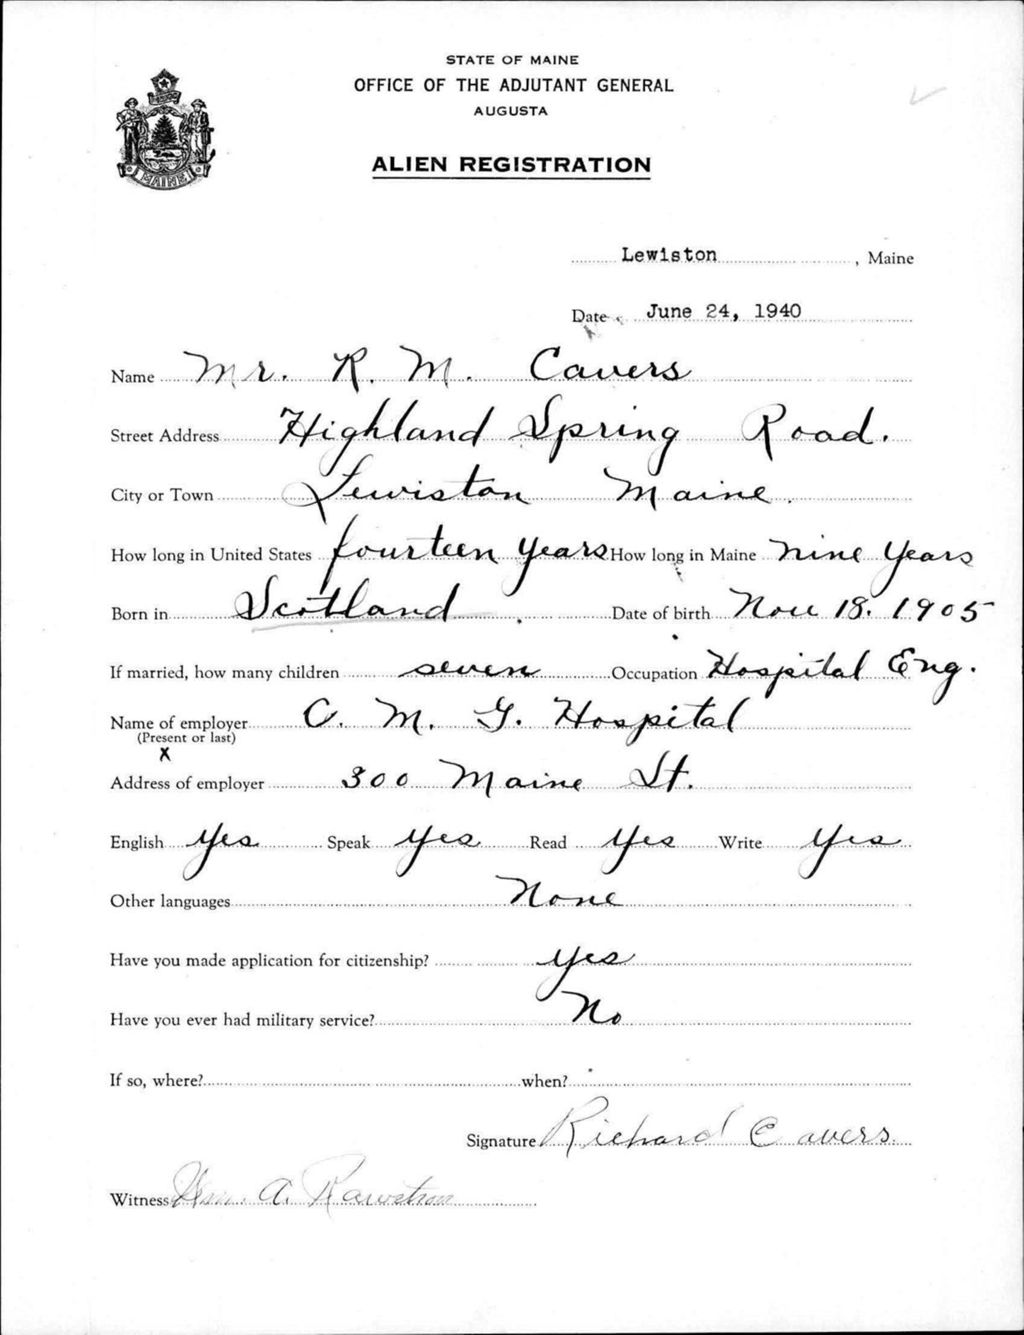 STATE OF MAINE
OFFICE OF THE ADJUTANT GENERAL
AUGUSTA
ALIEN REGISTRATION
MAINE
Lewiston, Maine
Date June 24, 1940
Name Mr. R. M. Cavers
Street Address Highland Spring Road.
City or Town Lewiston Maine.
How long in United States fourteen years How long in Maine nine years
Born in Scotland. Date of birth Nov 18. 1905
If married, how many children seven Occupation Hospital Eng.
Name of employer C. M. G. Hospital
(Present or last)
X
Address of employer 300 Maine St.
English Yes Speak Yes Read Yes Write Yes
Other languages None
Have you made application for citizenship? Yes
Have you ever had military service? No
If so, where? when?
Signature Richard Cavers
Witness Wm. A. Rawstron